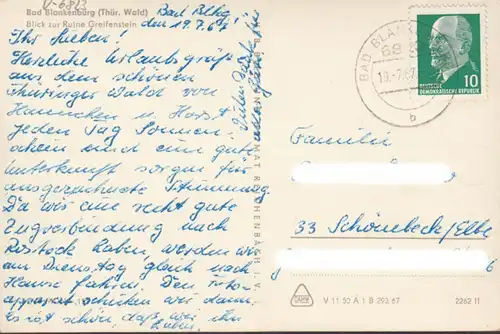 V-6813
Bad Blankenburg (Thür. Wald)
Blick zur Ruine Greifenstein
Bad Blbg.
den 19.7.67
Ihr Lieben!
Herzliche Urlaubsgrüße
aus dem schönen
Thüringer Wald von
Hannchen u. Horst
Jeden Tag Sonnen-
schein und eine gute
Unterkunft sorgen für
ausgezeichnete Stimmung.
Da wir eine recht gute
Zugverbindung nach
Rostock haben, werden wir
am Dienstag gleich nach
Hause fahren. Den Foto-
apparat schicken wir dann.
Es ist schön, daß wir ihn
haben.
BAD BLANK
19.-7.67
b
DEUTSCHE
DEMOKRATISCHE REPUBLIK
10
Familie
33 Schönebeck/Elbe
V 11 50 A 1 B 293 67
2262 11